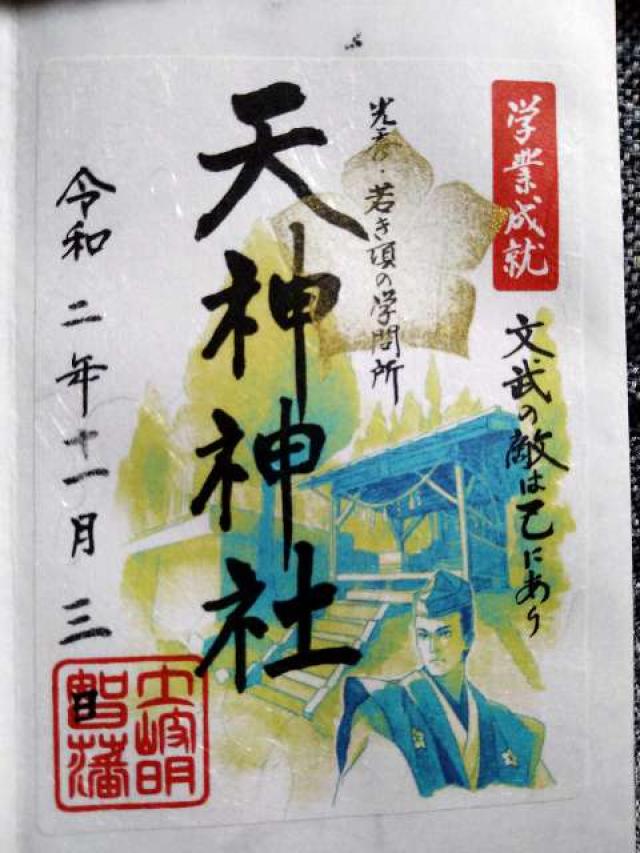 学業成就
文武の敵は己にあり
光秀・若き頃の学問所
天神神社
令和二年十一月三日
土岐明智藩